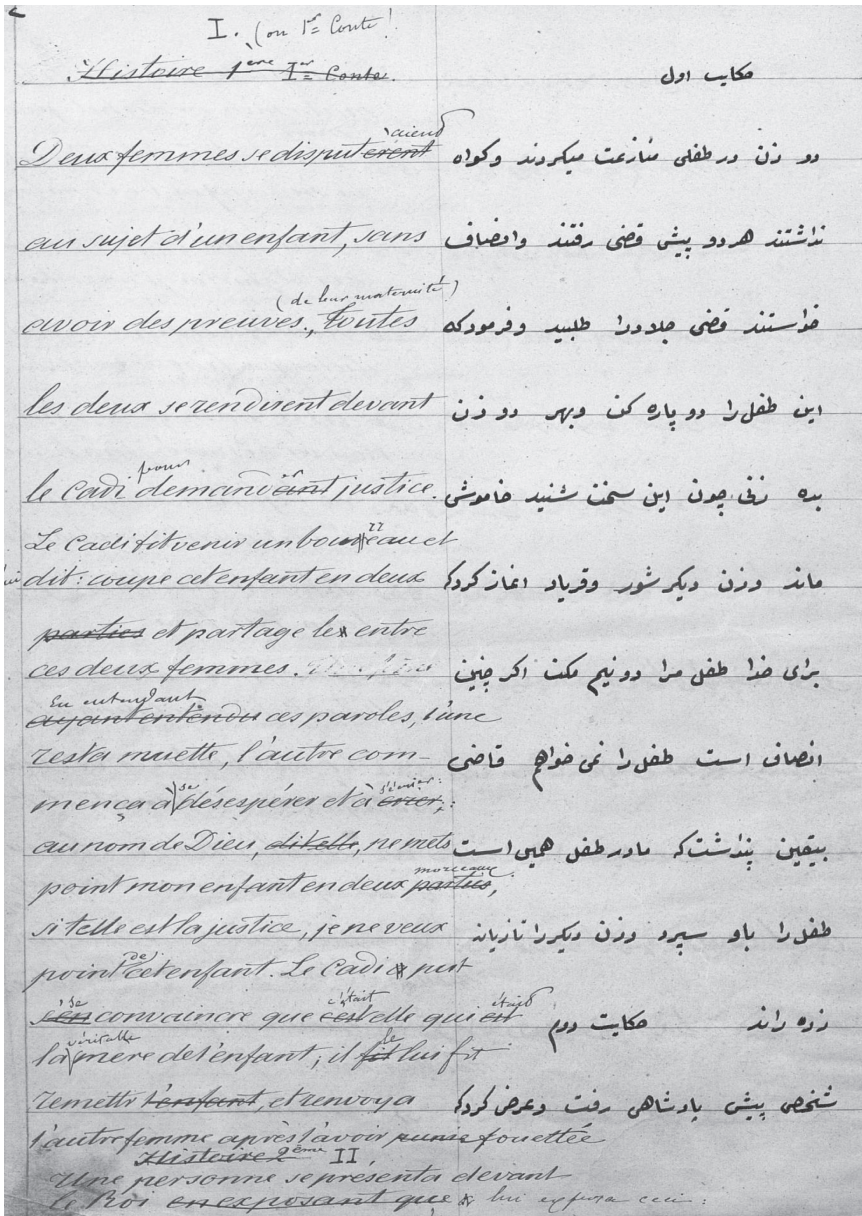 I. (ou 1er Conte)
Histoire 1ère Ier Conte.
Deux femmes se disputèrent aient
au sujet d'un enfant, sans
(de leur maternité)
avoir des preuves., Toutes
les deux se rendirent devant
pour
le Cadi demandant er justice.
Le Cadi fit venir un bourreau et
dit: coupe cet enfant en deux
parties et partage le entre
ces deux femmes.
En entendant
ayant entendu ces paroles, l'une
resta muette, l'autre com-
mença à se désespérer et à crier, s'écrier:
au nom de Dieu, dit elle, ne mets
morceaux
point mon enfant en deux parties,
si telle est la justice, je ne veux
point de cet enfant. Le Cadi put
se c'était était
s'en convaincre que c'est elle qui est
véritable le
la mère de l'enfant; il fit lui fit
remettr l'enfant, et renvoya
l'autre femme après l'avoir punie fouettée
Histoire 2ème II
Une personne se présenta devant
le Roi en exposant que lui exposa ceci:
حکایت اول
دو زن در طفلی منازعت میکردند وکواه
نداشتند هردو پیش قضی رفتند وانضاف
خواستند قضی جلادرا طلبید وفرمودکه
این طفل را دو پاره کن وبهر دو زن
بده زنی چون این سخن شنید خاموشی
ماند وزن دیکر شور وفریاد اغاز کردکه
برای خدا طفل مرا دونیم مکن اکر چنین
انصاف است طفل را نمی خواهم قاضی
بیقین پنداشت که مادر طفل همین است
طفل را باو سپرد وزن دیکررا تازیانه
زده راند حکایت دوم
شخصی پیش پادشاهی رفت وعرض کردکه